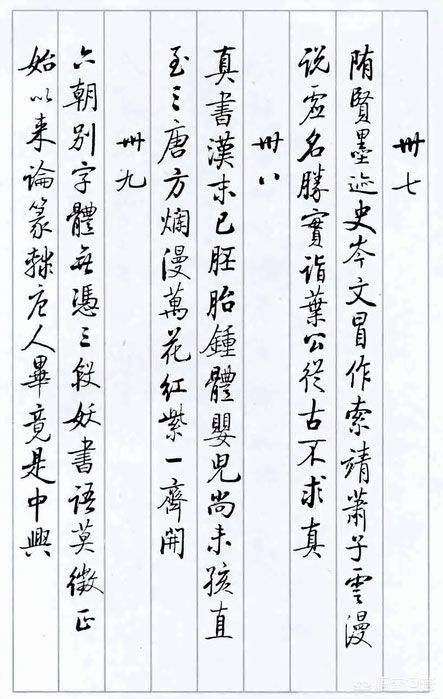 卌七
隋賢墨迹史岑文冒作索靖蕭子雲漫
说虚名勝實詣葉公從古不求真
卌八
真書漢末已胚胎鍾體嬰兒尚未孩直
至三唐方爛漫萬花红紫一齊開
卌九
六朝别字體無憑三段妖書语莫徵正
始以来论篆隸唐人畢竟是中興